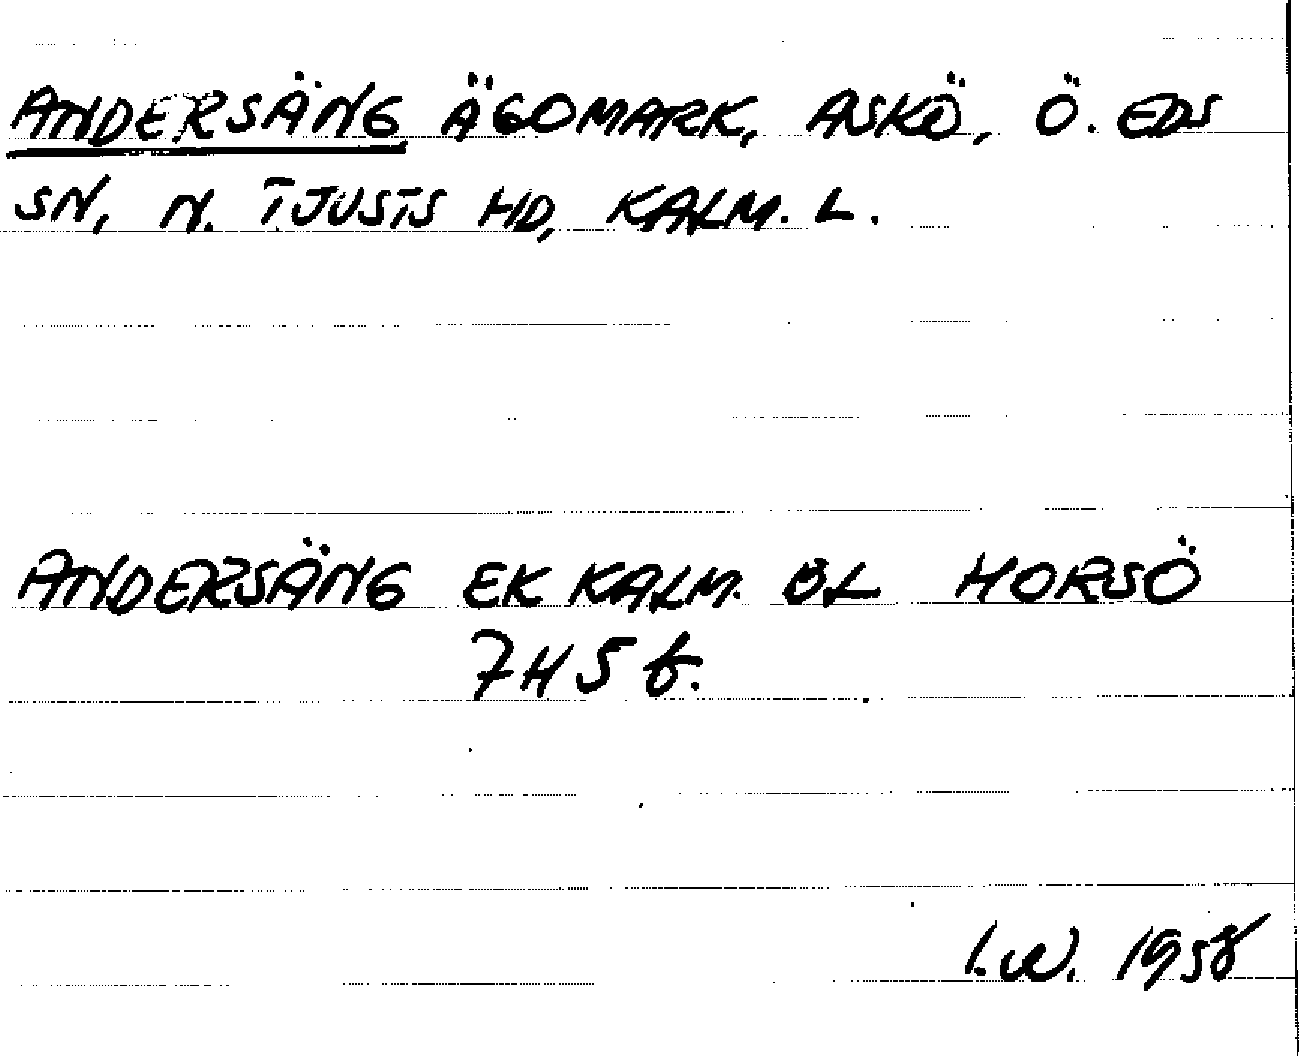 ANDERSÄNG ÄGOMARK, ASKÖ, Ö. EDS
SN, N. TJUSTS HD, KALM. L.
ANDERSÄNG EK KALM. BL HORSÖ
7H5f.
I.W. 1958